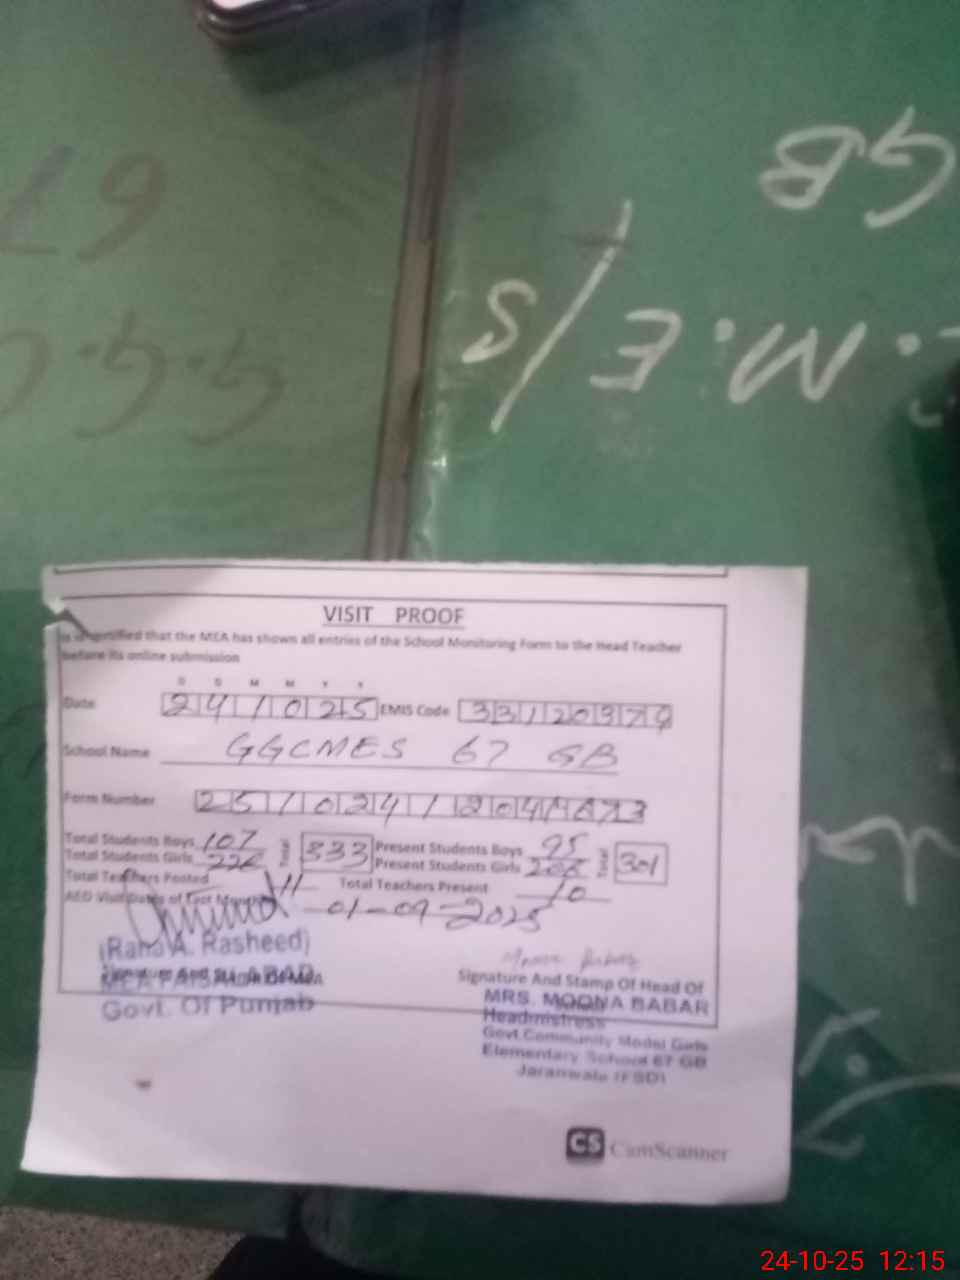 GB
M.E/S
67
VISIT PROOF
is certified that the MEA has shown all entries of the School Monitoring Form to the Head Teacher
before its online submission
D D M M Y Y
Date 24 10 25 EMIS Code 33120379
School Name GGCMES 67 GB
Form Number 251024/204
Total Students Boys 107 Total 333 Present Students Boys 95 Total 301
Total Students Girls 226 Present Students Girls 206
Total Teachers Posted 11 Total Teachers Present 10
AEO Visit Dates of Last Month 01-09-2025
(Rana A. Rasheed)
Signature And Stamp Of MEA
MEA FAISALABAD
Govt. Of Punjab
Moona Babar
Signature And Stamp Of Head Of
MRS. MOONA BABAR
Headmistress
Govt Community Model Girls
Elementary School 67 GB
Jaranwala (FSD)
CS CamScanner
24-10-25 12:15